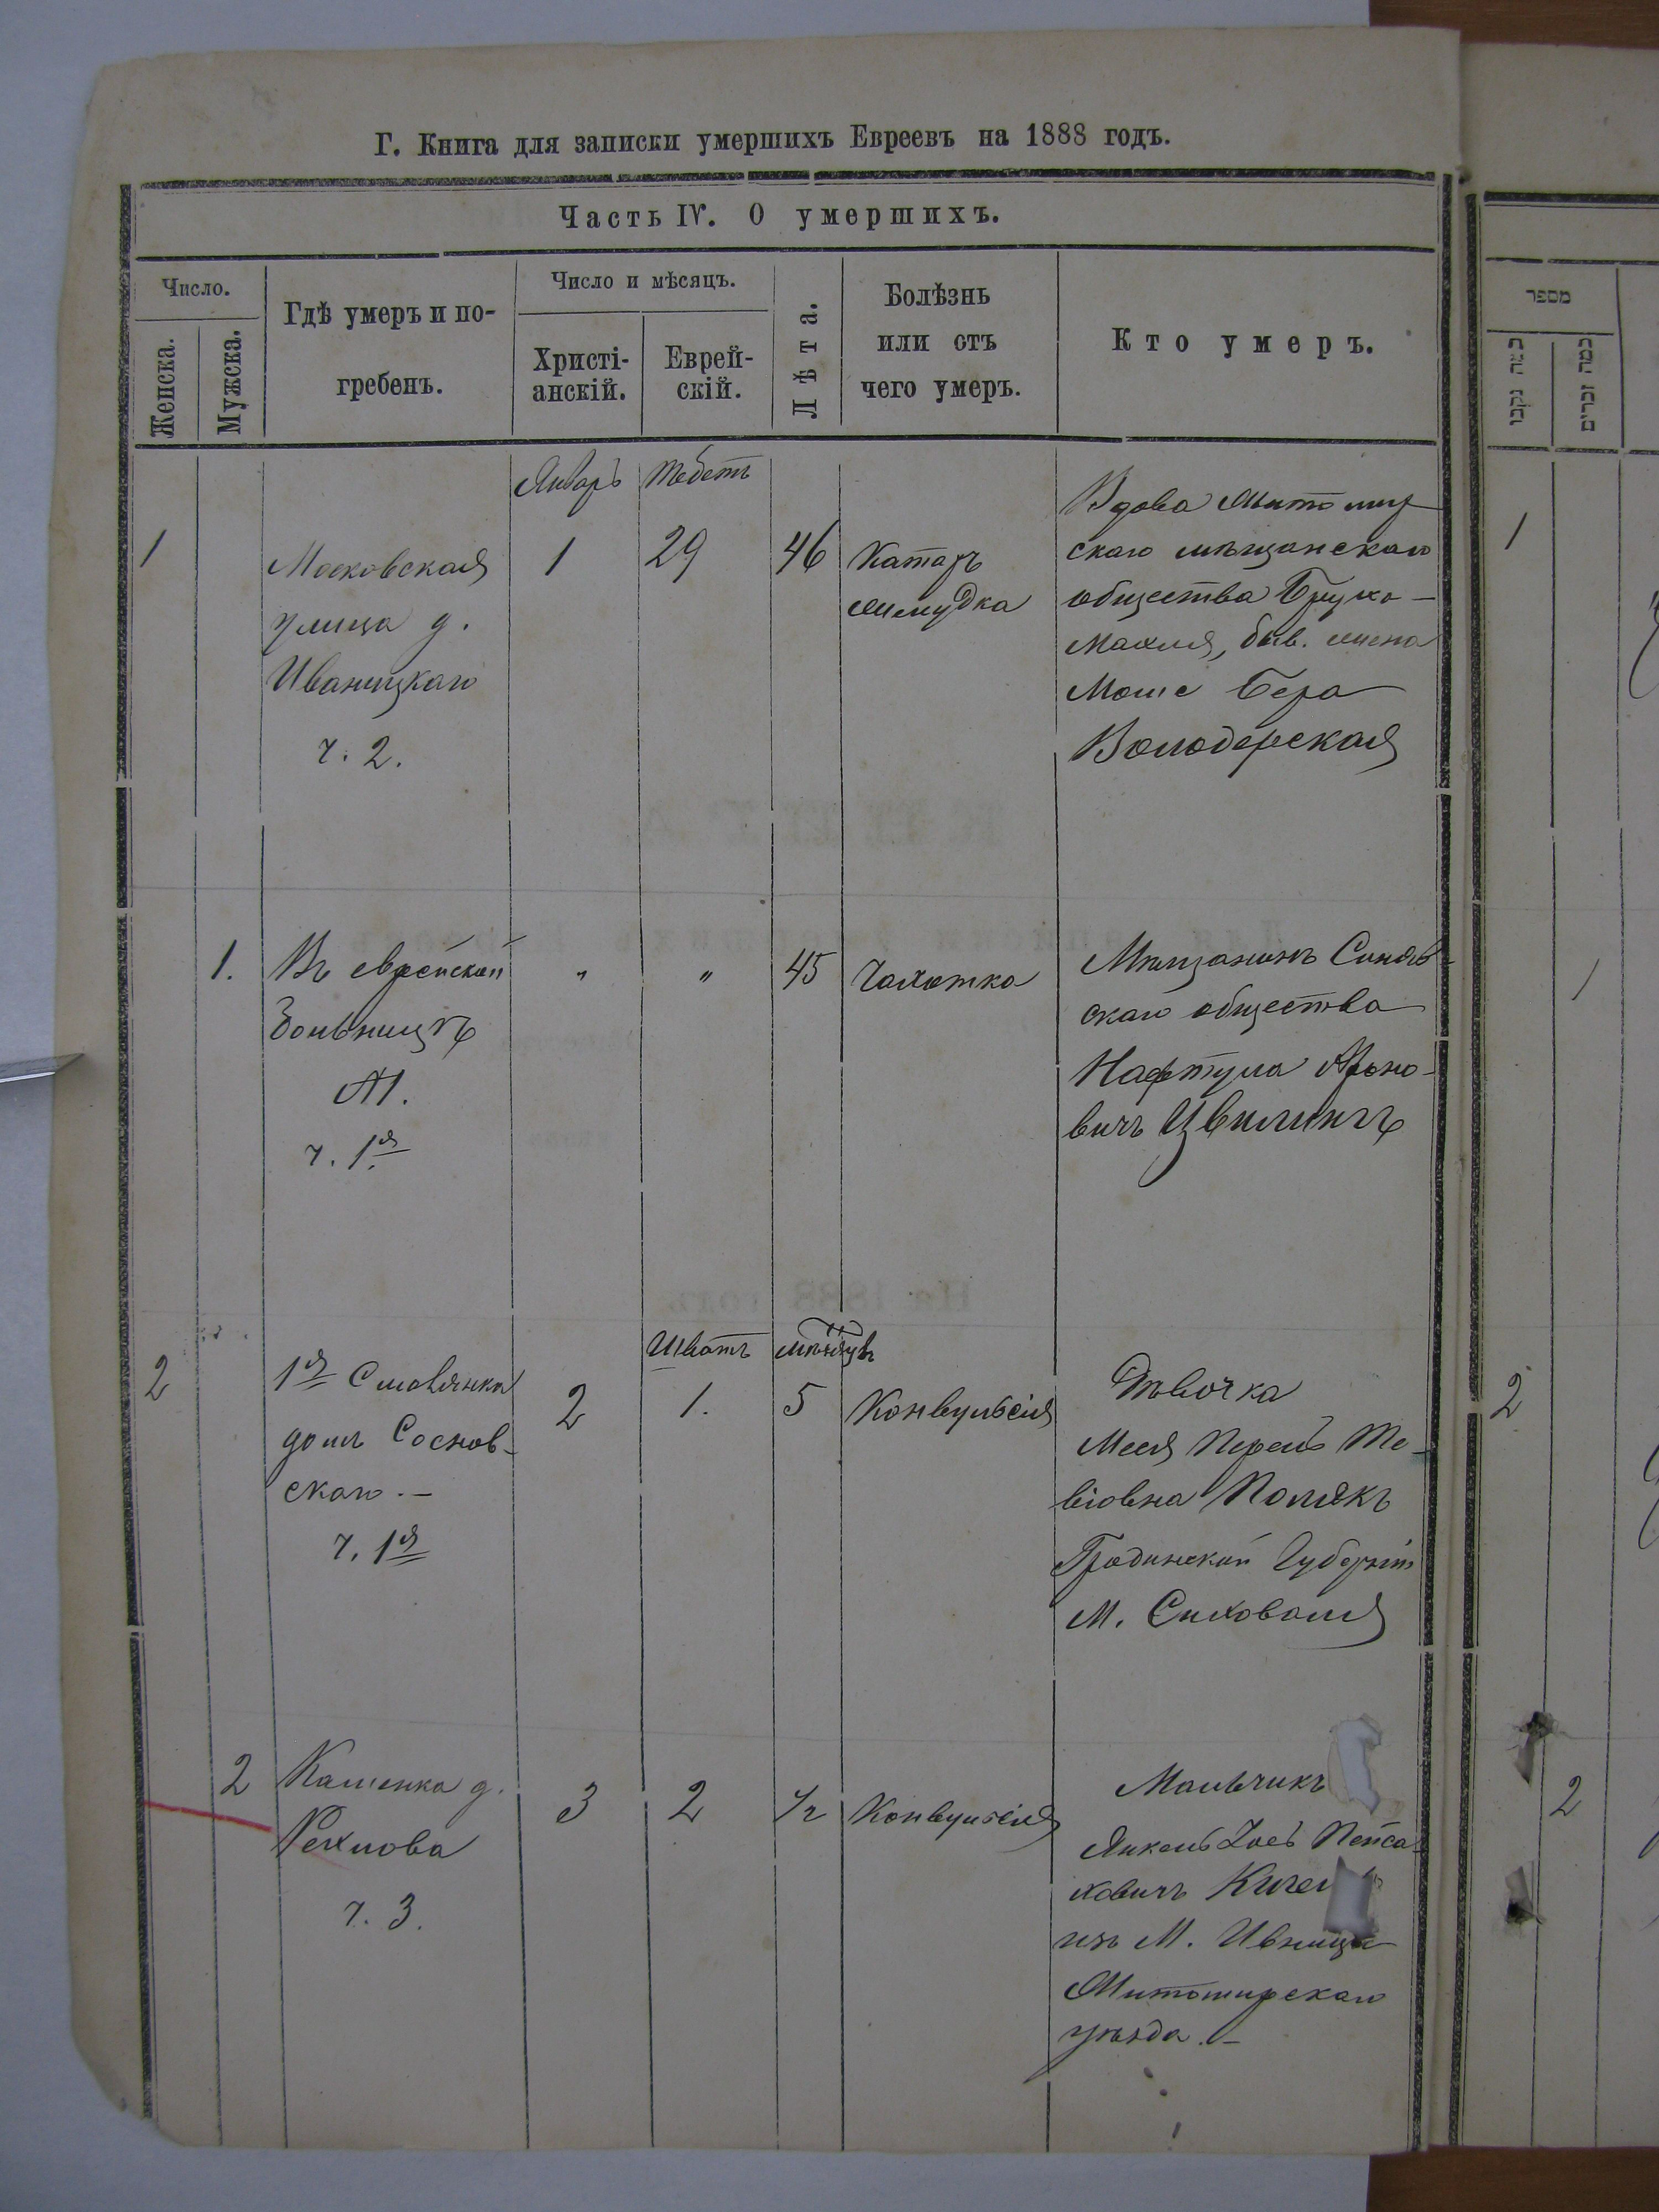 Г. Книга для записки умершихъ Евреевъ на 1888 годъ.
Часть IV. О умершихъ.
Число.
Женска.
Мужска.
Гдѣ умеръ и по-
гребенъ.
Число и мѣсяцъ.
Христі-
анскій.
Еврей-
скій.
Лѣта.
Болѣзнь
или отъ
чего умеръ.
Кто умеръ.
מספר
כמה זכרים
Январь Тебетъ
1
Московская
улица д.
Иваницкаго
ч. 2.
1
29
46
Катаръ
желудка
Вдова Житомир
скаго мѣщанскаго
общества Бруха-
Махля, быв. жена
Моше Бера
Володарская
1
1.
Въ еврейской
больницѣ
ч. 1я
"
"
45
Чахотка
Мѣщанинъ
скаго общества
Нафтула Ароно-
вичъ Цвилингъ
1
2
1я Смолянка
домъ Соснов-
скаго.-
ч. 1я
2
Шватъ
1.
мѣсяцъ
5
Конвульсія
Дѣвочка
Перель Те-
віовна Полякъ
Гродненской Губерніи
М. Сиховоля
2
2
Каменка д.
Рехлова
ч. 3.
3
2
1/2
Конвульсія
Мальчикъ
Янкель Зось Пейса
ховичъ
изъ М. Ивница
Житомирскаго
уѣзда.-
2